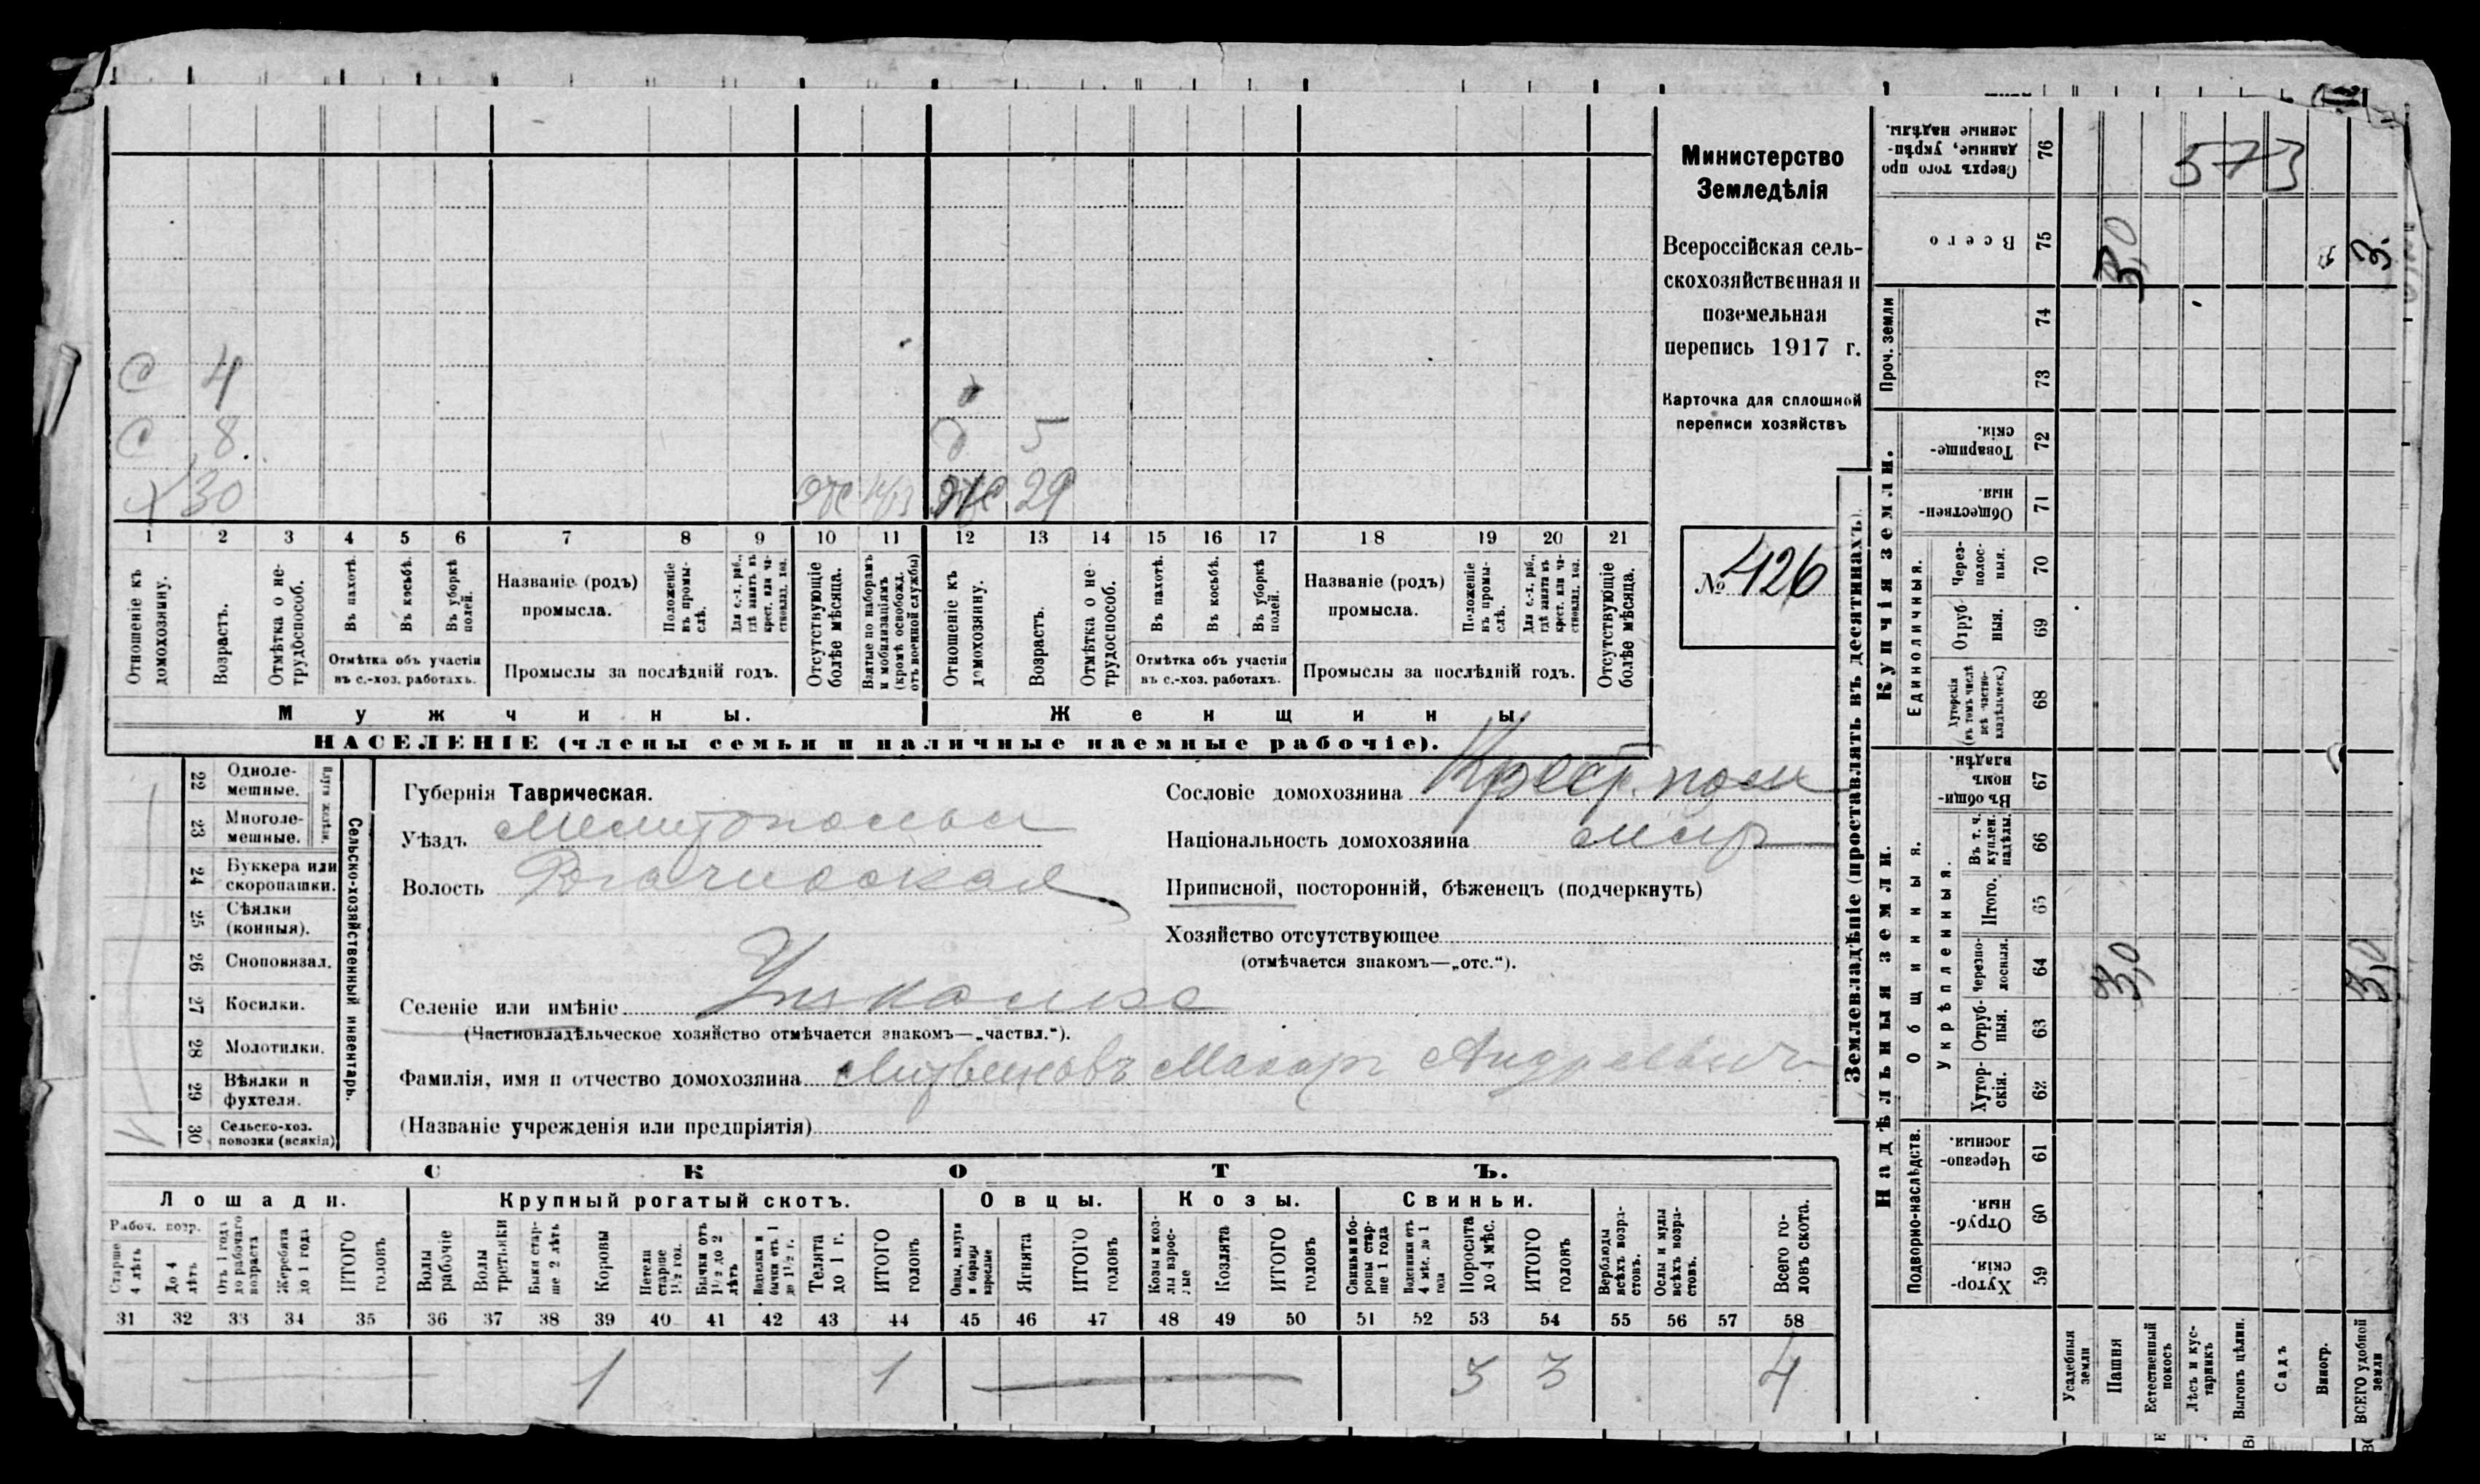 Министерство
Земледѣлія
Всероссійская сель-
скохозяйственная и
поземельная
перепись 1917 г.
Карточка для сплошной
переписи хозяйствъ
№ 426
С 4
С 8
Х 30 отс
д
д 5
29
1 2 3 4 5 6 7 8 9 10 11 12 13 14 15 16 17 18 19 20 21
Отношеніе къ домохозяину.
Возрастъ.
Отмѣтка о не-трудоспособ.
Въ пахотѣ.
Въ косьбѣ.
Въ уборкѣ полей.
Отмѣтка объ участіи
въ с.-хоз. работахъ.
Названіе (родъ)
промысла.
Положеніе въ промы-слѣ.
Для с.-х. раб., гдѣ занятъ въ крест. или ча-стновлад. хоз.
Промыслы за послѣдній годъ.
Отсутствующіе болѣе мѣсяца.
Взятые по наборамъ и мобилизаціямъ (кромѣ освобожд. отъ военной службы)
Отношеніе къ домохозяину.
Возрастъ.
Отмѣтка о не-трудоспособ.
Въ пахотѣ.
Въ косьбѣ.
Въ уборкѣ полей.
Отмѣтка объ участіи
въ с.-хоз. работахъ.
Названіе (родъ)
промысла.
Положеніе въ промы-слѣ.
Для с.-х. раб., гдѣ занятъ въ крест. или ча-стновлад. хоз.
Промыслы за послѣдній годъ.
Отсутствующіе болѣе мѣсяца.
Мужчины.
Женщины.
НАСЕЛЕНІЕ (члены семьи и наличные наемные рабочіе).
Сельско-хозяйственный инвентарь.
22 Одноле-мешные.
23 Многоле-мешные.
24 Буккера или скоропашки.
25 Сѣялки (конныя).
26 Сноповязал.
27 Косилки.
28 Молотилки.
29 Вѣялки и фухтеля.
30 Сельско-хоз. повозки (всякія)
Губернія Таврическая.
Уѣздъ Мелитопольск
Волость Рогачикская
Селеніе или имѣніе Ушкалка
(Частновладѣльческое хозяйство отмѣчается знакомъ—„частвл.“).
Фамилія, имя и отчество домохозяина Литвиновъ Макар Андреевич
(Названіе учрежденія или предпріятія)
Сословіе домохозяина Крест. пос
Національность домохозяина
Приписной, посторонній, бѣженецъ (подчеркнуть)
Хозяйство отсутствующее
(отмѣчается знакомъ—„отс.“).
СКОТЪ.
Лошади.
Крупный рогатый скотъ.
Овцы.
Козы.
Свиньи.
Рабоч. возр.
Старше 4 лѣтъ
До 4 лѣтъ
Отъ 1 года до рабочаго возраста
Жеребята до 1 года
ИТОГО головъ
Волы рабочіе
Волы третьяки
Быки стар-ше 2 лѣтъ
Коровы
Нетели старше 1½ год.
Бычки отъ 1½ до 2 лѣтъ
Подтелки и бычки отъ 1 до 1½ г.
Телята до 1 г.
ИТОГО головъ
Овцы, валухи и бараны взрослые
Ягнята
ИТОГО головъ
Козы и коз-лы взрос-лые
Козлята
ИТОГО головъ
Свиньи и бо-ровы стар-ше 1 года
Подсвинки отъ 4 мѣс. до 1 года
Поросята до 4 мѣс.
ИТОГО головъ
Верблюды всѣхъ возра-стовъ.
Ослы и мулы всѣхъ возра-стовъ.
Всего го-ловъ скота.
31 32 33 34 35 36 37 38 39 40 41 42 43 44 45 46 47 48 49 50 51 52 53 54 55 56 57 58
1 1 3 3 4
Землевладѣніе (проставлять въ десятинахъ).
573
Сверхъ того про-данные, укрѣп-ленные надѣлы. 76
Всего 75 3,0 3.
Проч. земли
74
73
Купчія земли.
Товарище-скія. 72
Обществен-ныя. 71
Единоличныя.
Через-полос-ныя. 70
Отруб-ныя. 69
Хуторскія (въ томъ числѣ всѣ частно-владѣльческ.) 68
Надѣльныя земли.
Общинныя.
Въ общи-номъ владѣн. 67
Укрѣпленныя.
Въ т. ч. куплен. надѣлы. 66
Итого. 65
Черезпо-лосныя. 64 3,0 3,0
Отруб-ныя. 63
Хутор-скія. 62
Подворно-наслѣдств.
Черезпо-лосныя. 61
Отруб-ныя. 60
Хутор-скія. 59
Усадебныя земли
Пашня
Естественный покосъ
Лѣсъ и кус-тарникъ
Выгонъ цѣлин.
Садъ
Виногр.
ВСЕГО удобной земли